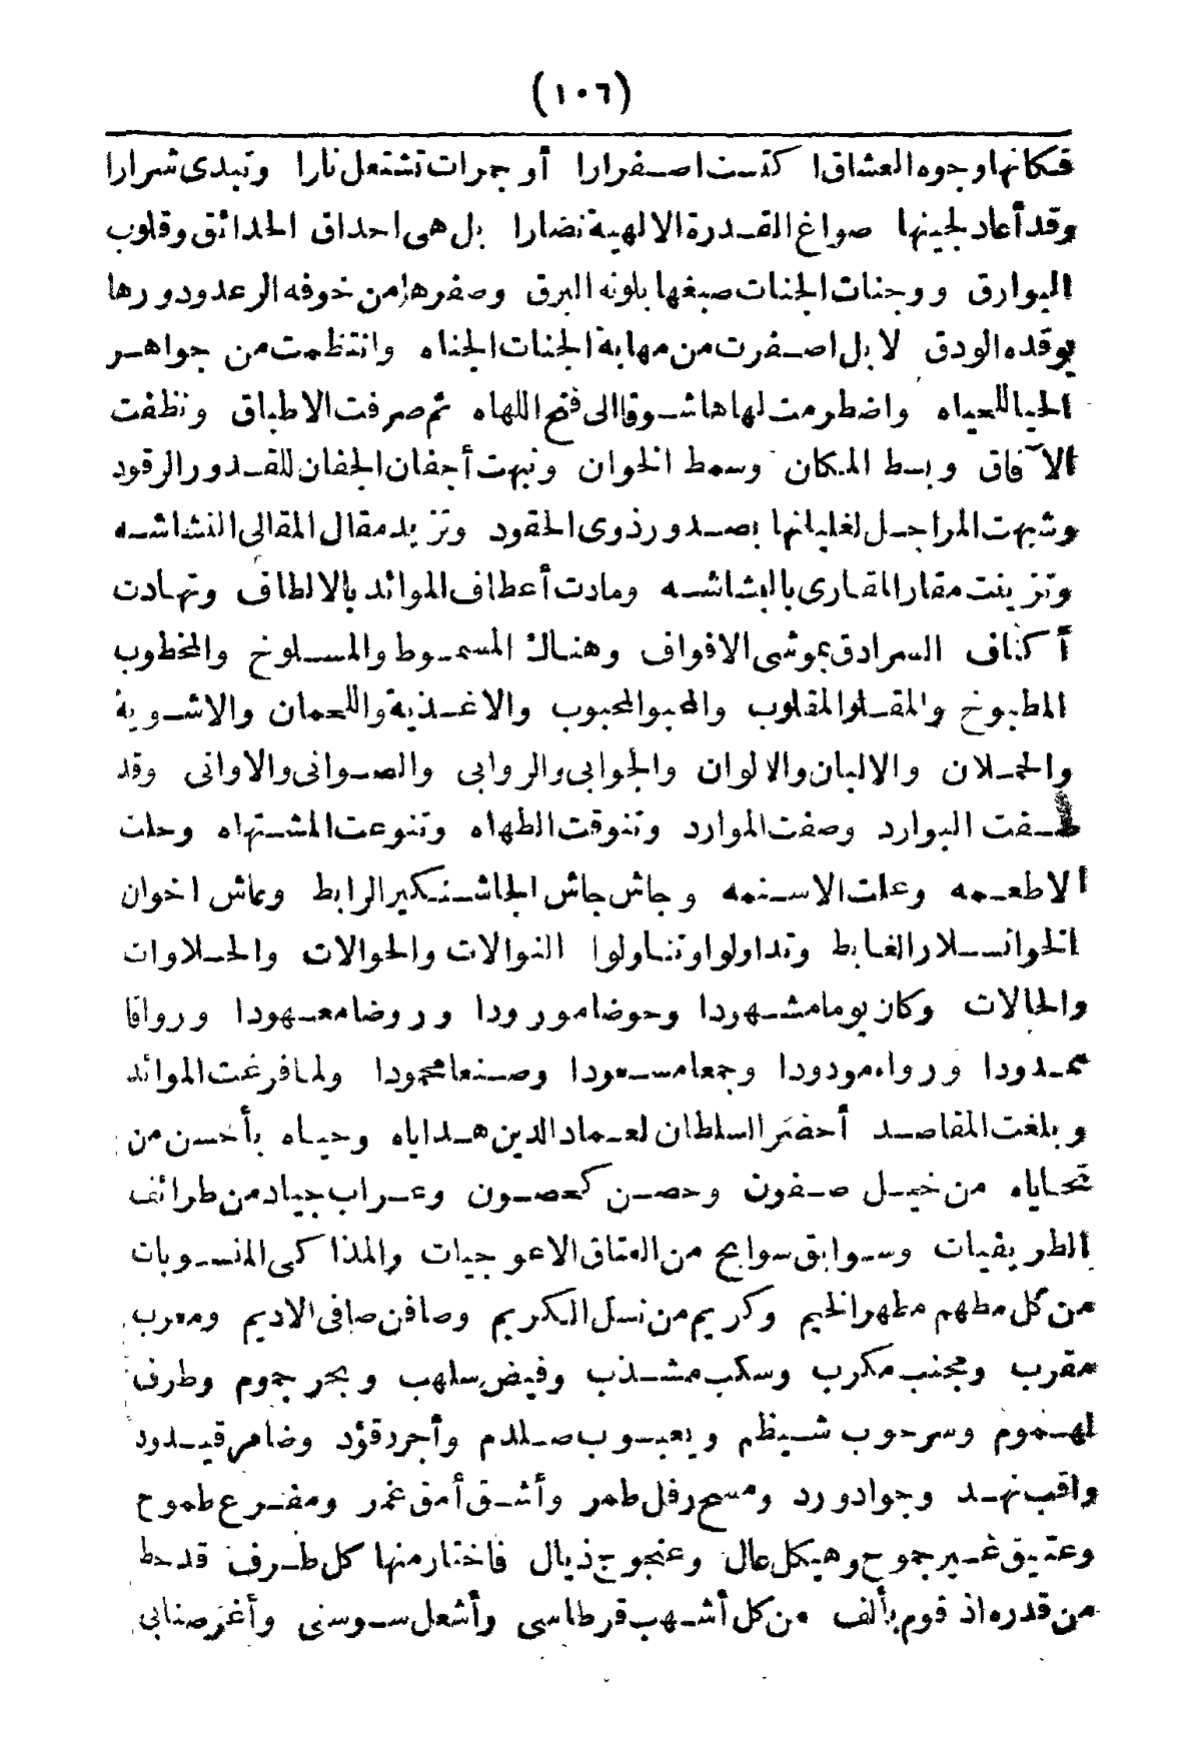 (١٠٦)
فكانها وجوه العشاق اكتست اصفرارا أو جمرات تشتعل نارا وتبدى شرارا
وقد أعاد لجينها صواغ القدرة الالهية نضارا بل هى احداق الحدائق وقلوب
البوارق ووجنات الجنات صبغها بلونه البرق وصفرها من خوفه الرعد ودورها
بوقده الودق لا بل اصفرت من مهابة الجنات الجناه وانتظمت من جواهر
الحيا للحياه واضطرمت لهاها شوقا الى فتح اللهاه ثم صرفت الاطباق ونظفت
الآفاق وبسط المكان وسمط الخوان ونبهت أجفان الجفان للقدور الرقود
وشبهت المراجل لغليانها بصدور ذوى الحقود وتزيد مقال المقالى النشاشه
وتزينت مقار المقارى بالبشاشه ومادت أعطاف الموائد بالالطاف وتهادت
أكناف السرادق بموشى الافواف وهناك المسموط والمسلوخ والمخطوب
المطبوخ والمقلو المقلوب والمحبو المحبوب والاغذية واللحمان والاشوية
والحملان والالبان والالوان والجوابى والروابى والصوانى والاوانى وقد
صفت البوارد وصفت الموارد وتنوقت الطهاه وتنوعت المشتهاه وحلت
الاطعمه وعلت الاسنمه وجاش جاش الجاشنكير الرابط وعاش اخوان
الخوانسلار الغابط وتداولوا وتناولوا النوالات والحوالات والحلاوات
والحالات وكان يوما مشهودا وحوضا مورودا وروضا معهودا ورواقا
ممدودا ورواء مودودا وجمعا مسعودا وصنعا محمودا ولما فرغت الموائد
وبلغت المقاصد أحضر السلطان لعماد الدين هداياه وحياه بأحسن من
تحاياه من خيل صفون وحصن كحصون وعراب جياد من طرائف
الطريفيات وسوابق سوابح من العتاق الاعوجيات والمذاكى المنسوبات
من كل مطهم مطهر الخيم وكريم من نسل الكريم وصافن صافى الاديم ومعرب
مقرب ومجنب مكرب وسكب مشذب وفيض سلهب وبحر جموم وطرف
لهموم وسرحوب شيظم ويعبوب صلدم وأجرد قؤد وضامر قيدود
واقب نهد وجواد ورد ومسح رفل طمر وأشق أمق غمر ومفرع طموح
وعتيق غير جموح وهيكل عال وعنجوج ذيال فاختار منها كل طرف قد حط
من قدره اذ قوم بألف من كل أشهب قرطاسى وأشعل سوسنى وأغر صنابى